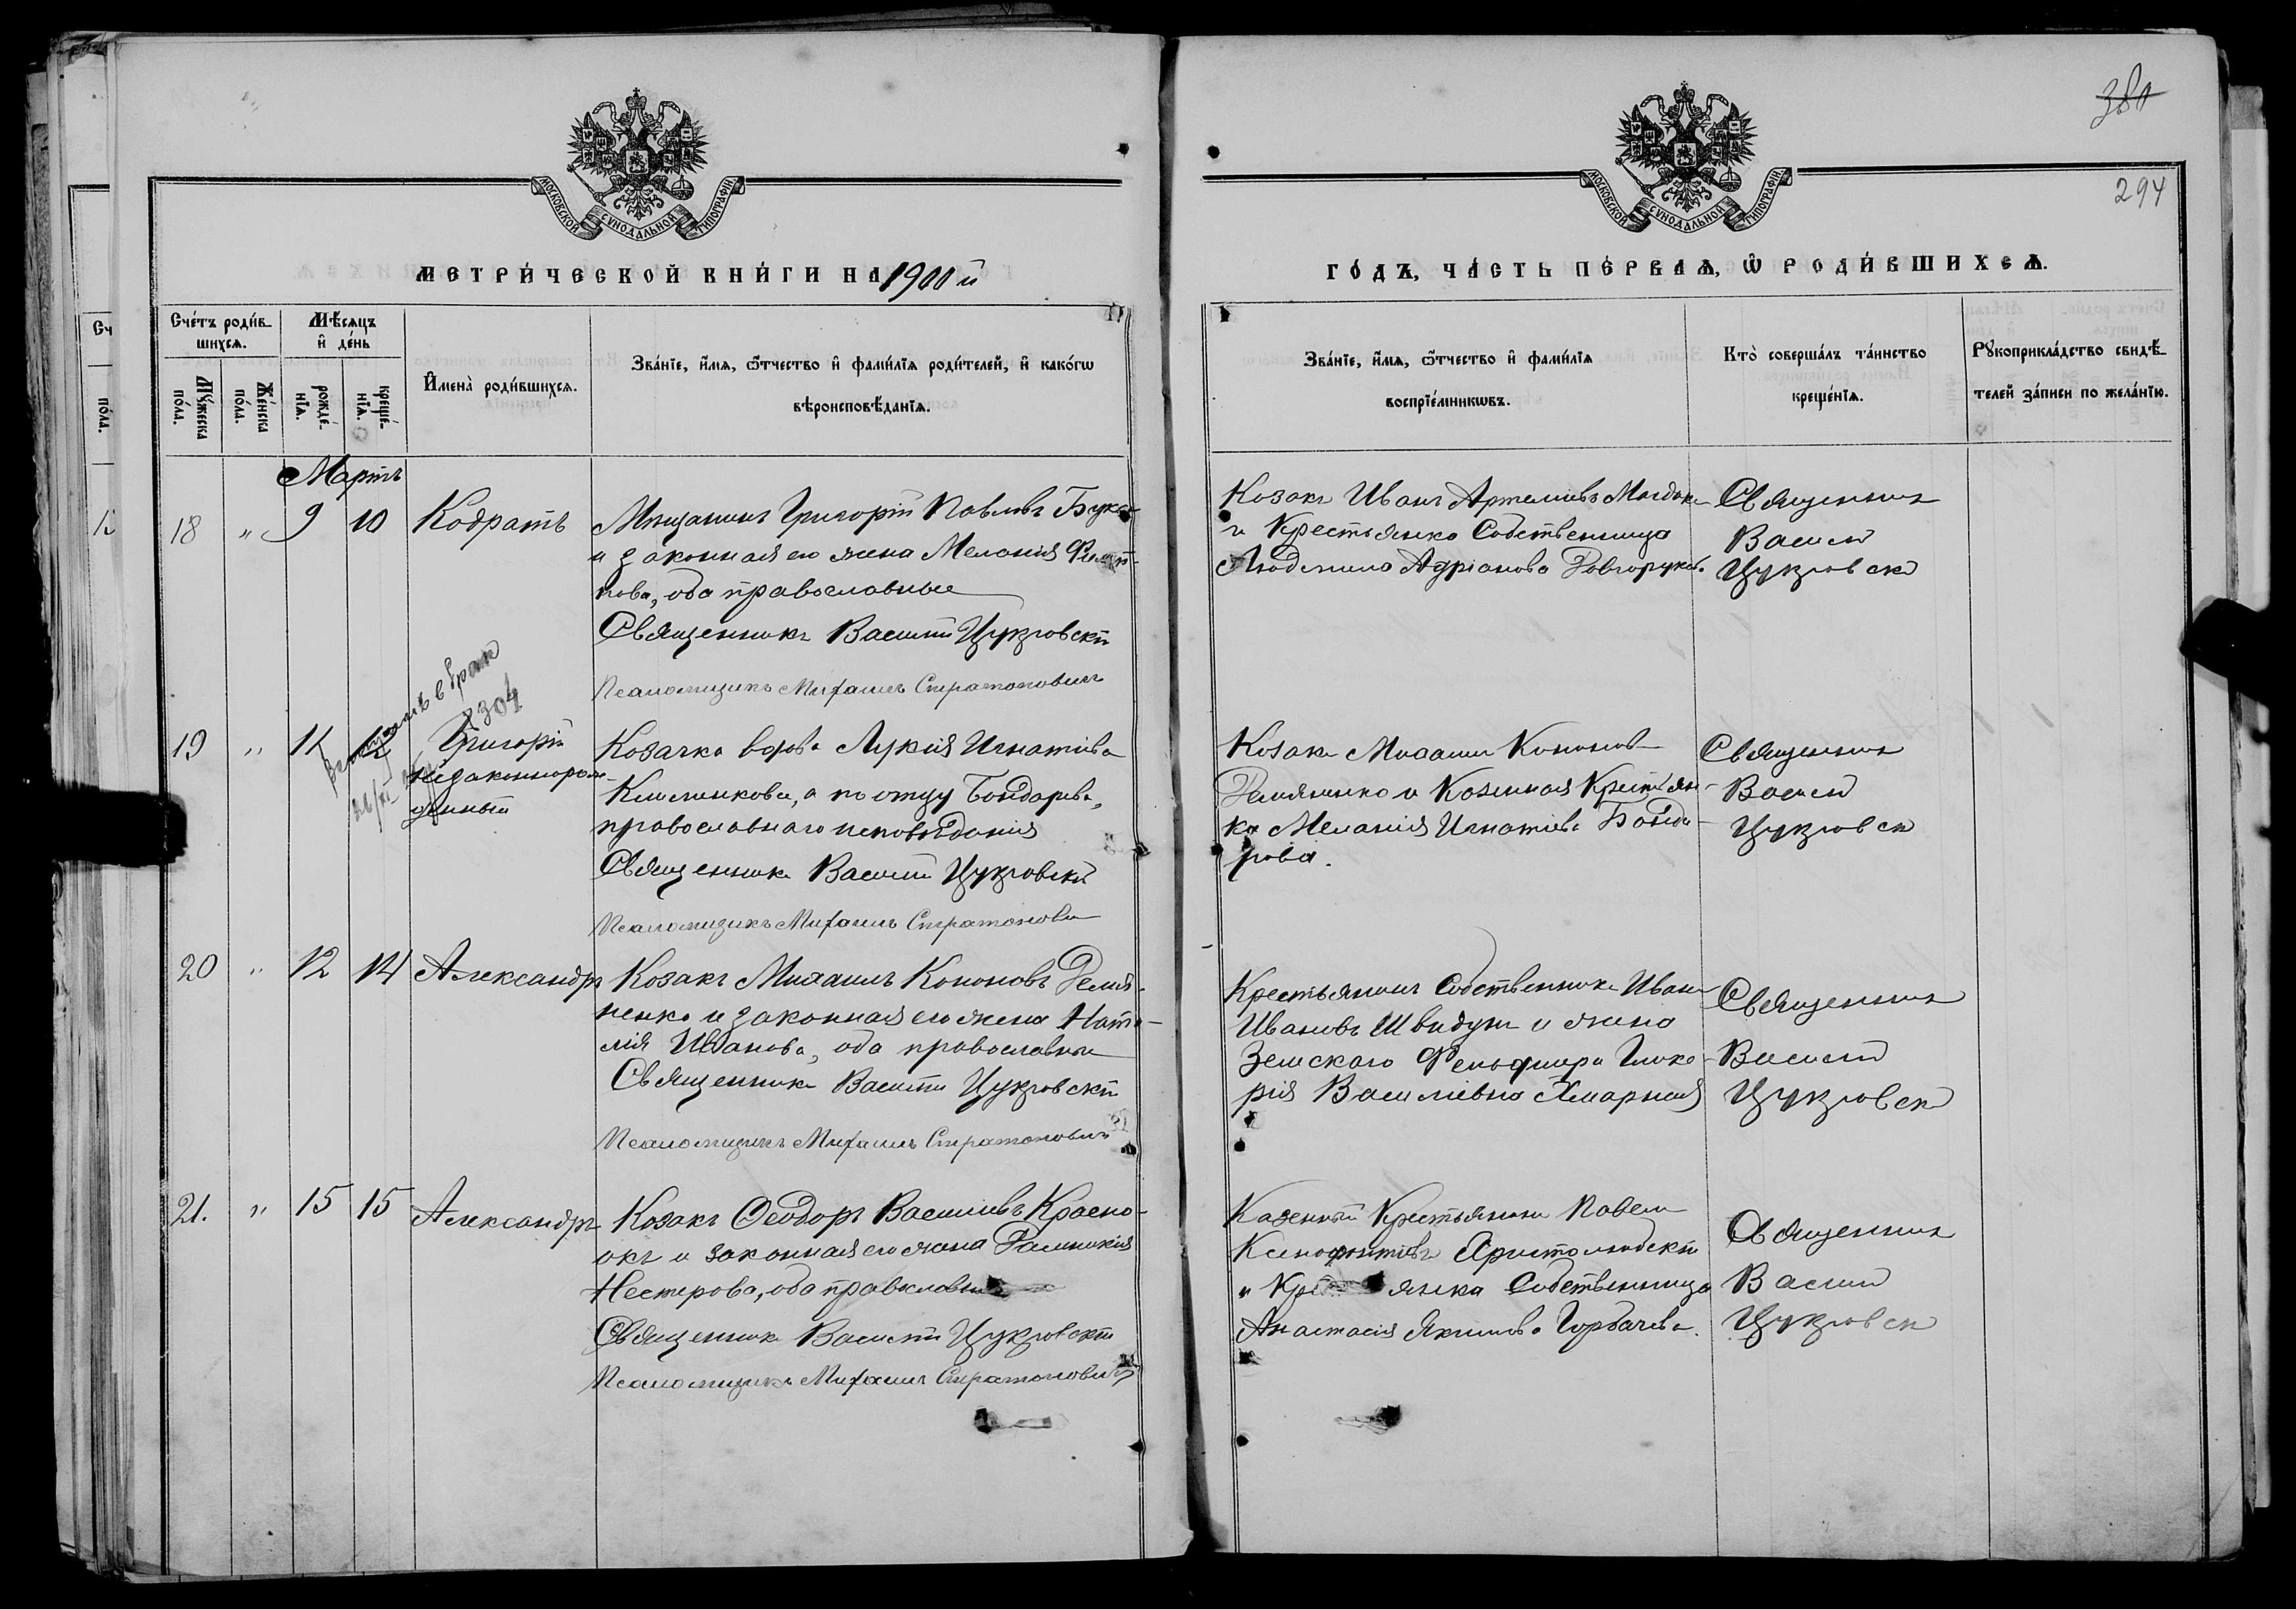 МОСКОВСКОЙ СУНОДАЛЬНОЙ ТИПОГРАФІИ
МЕТРИ́ЧЕСКОЙ КНИ́ГИ НА 1900 й
Сче́тъ роди́вшихсѧ.
Мѣ́сѧцъ и҆ де́нь
И҆мена̀ роди́вшихсѧ.
Зва́нїе, и҆́мѧ, ѻ҆́тчество и҆ фами́лїѧ роди́телей, и҆ како́гѡ
вѣроисповѣ́данїѧ.
Мꙋ́жеска по́ла.
Же́нска по́ла.
рожде́нїѧ.
креще́нїѧ.
Мартъ
18 " 9 10 Кодратъ
Мѣщанинъ Григорій Павловъ
и законная его жена Меланія
пова, оба православные
Священникъ Василій Цукровскій
Псаломщикъ Михаилъ Стратоновичъ
в брак
304
19 " 11 Григорій
незаконнорож-
денный
Козачка вдова Лукія Игнатіева
а по отцу Бондарева,
православнаго исповѣданія
Священникъ Василій Цукровскій
Псаломщикъ Михаилъ Стратонович
20 " 12 14 Александръ
Козакъ Михаилъ Кононовъ Демя-
ненко и законная его жена Ната-
лія Иванова, оба православные
Священникъ Василій Цукровскій
Псаломщикъ Михаилъ Стратонович
21. " 15 15 Александръ
Козакъ Ѳеодоръ Василіевъ Красно-
окъ и законная его жена Домникія
Нестерова, оба православны
Священникъ Василій Цукровскій
Псаломщикъ Михаилъ Стратонович
380
294
МОСКОВСКОЙ СУНОДАЛЬНОЙ ТИПОГРАФІИ
ГО́ДЪ, ЧА́СТЬ ПЕ́РВАѦ, Ѡ҆ РОДИ́ВШИХСѦ.
Зва́нїе, и҆́мѧ, ѻ҆́тчество и҆ фами́лїѧ
воспрїе́мникѡвъ.
Кто̀ соверша́лъ та́инство
креще́нїѧ.
Рꙋкоприкла́дство свидѣ́-
телей за́писи по жела́нїю.
Козакъ Иванъ Артеміевъ
и Крестьянка Собственница
Людмила Адріанова Довгорукова.
Священник
Василій
Цукровск
Козакъ Михаилъ Кононов
Демяненко и Казенная Крестьян-
ка Меланія Игнатіева Бонда-
рова.
Священник
Василій
Цукровск
Крестьянинъ Собственникъ Иванъ
Ивановъ Швидун и жена
Земскаго Фельдшера Глике-
рія Василіевна Хмарная
Священник
Василій
Цукровск
Казенный Крестьянинъ Павелъ
Ксенофонтіевъ
и Кре янка Собственница
Анастасія Якимова Горбачева.
Священник
Василій
Цукровск